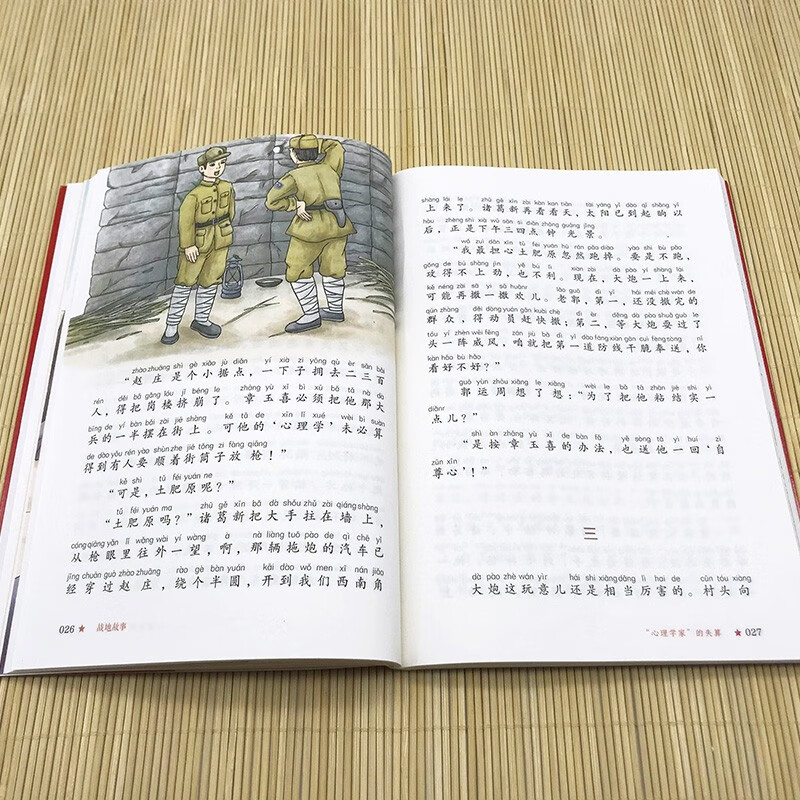 zhào zhuāng shì gè xiǎo jù diǎn yí xià zi yōng qù èr sān bǎi
“赵庄是个小据点，一下子拥去二三百
rén děi bǎ gǎng lóu jǐ bēng le zhāng yù xǐ bì xū bǎ tā nà dà
人，得把岗楼挤崩了。章玉喜必须把他那大
bīng de yí bàn bǎi zài jiē shàng kě tā de xīn lǐ xué wèi bì suàn
兵的一半摆在街上。可他的‘心理学’未必算
dé dào yǒu rén yào shùn zhe jiē tǒng zi fàng qiāng
得到有人要顺着街筒子放枪！”
kě shì tǔ féi yuán ne
“可是，土肥原呢？”
tǔ féi yuán ma zhū gě xīn bǎ dà shǒu zhǔ zài qiáng shàng
“土肥原吗？”诸葛新把大手拄在墙上，
cóng qiāng yǎn lǐ wǎng wài yí wàng à nà liàng tuō pào de qì chē yǐ
从枪眼里往外一望，啊，那辆拖炮的汽车已
jīng chuān guò zhào zhuāng rào gè bàn yuán kāi dào wǒ men xī nán jiǎo
经穿过赵庄，绕个半圆，开到我们西南角
026 ★ 战地故事
shàng lái le zhū gě xīn zài kàn kan tiān tài yáng yǐ dào qǐ shǎng yǐ
上来了。诸葛新再看看天，太阳已到起晌以
hòu zhèng shì xià wǔ sān sì diǎn zhōng guāng jǐng
后，正是下午三四点钟光景。
wǒ zuì dān xīn tǔ féi yuán hū rán pǎo diào yào shi bù pǎo
“我最担心土肥原忽然跑掉。要是不跑，
gōng de bú shàng jìn yě bú lì xiàn zài dà pào yì shàng lái
攻得不上劲，也不利。现在，大炮一上来，
kě néng zài sā yi sā huānr lǎo guō dì yī hái méi chè wán de
可能再撒一撒欢儿。老郭，第一，还没撤完的
qún zhòng děi dòng yuán gǎn kuài chè dì èr děng dà pào shuǎ guò le
群众，得动员赶快撤；第二，等大炮耍过了
tóu yí zhèn wēi fēng zán jiù bǎ dì yī dào fáng xiàn gān cuì fèng sòng nǐ
头一阵威风，咱就把第一道防线干脆奉送，你
kàn hǎo bù hǎo
看好不好？”
guō yùn zhōu xiǎng le xiǎng wèi le bǎ tā zhān jiē shi yì
郭运周想了想：“为了把他粘结实一
diǎnr
点儿？”
shì àn zhāng yù xǐ de bàn fǎ yě sòng tā yì huí zì
“是按章玉喜的办法，也送他一回‘自
zūn xīn
尊心’！”
三
dà pào zhè wán yìr hái shi xiāng dāng lì hai de cūn tóu xiàng
大炮这玩意儿还是相当厉害的。村头向
“心理学家”的失算 ★ 027